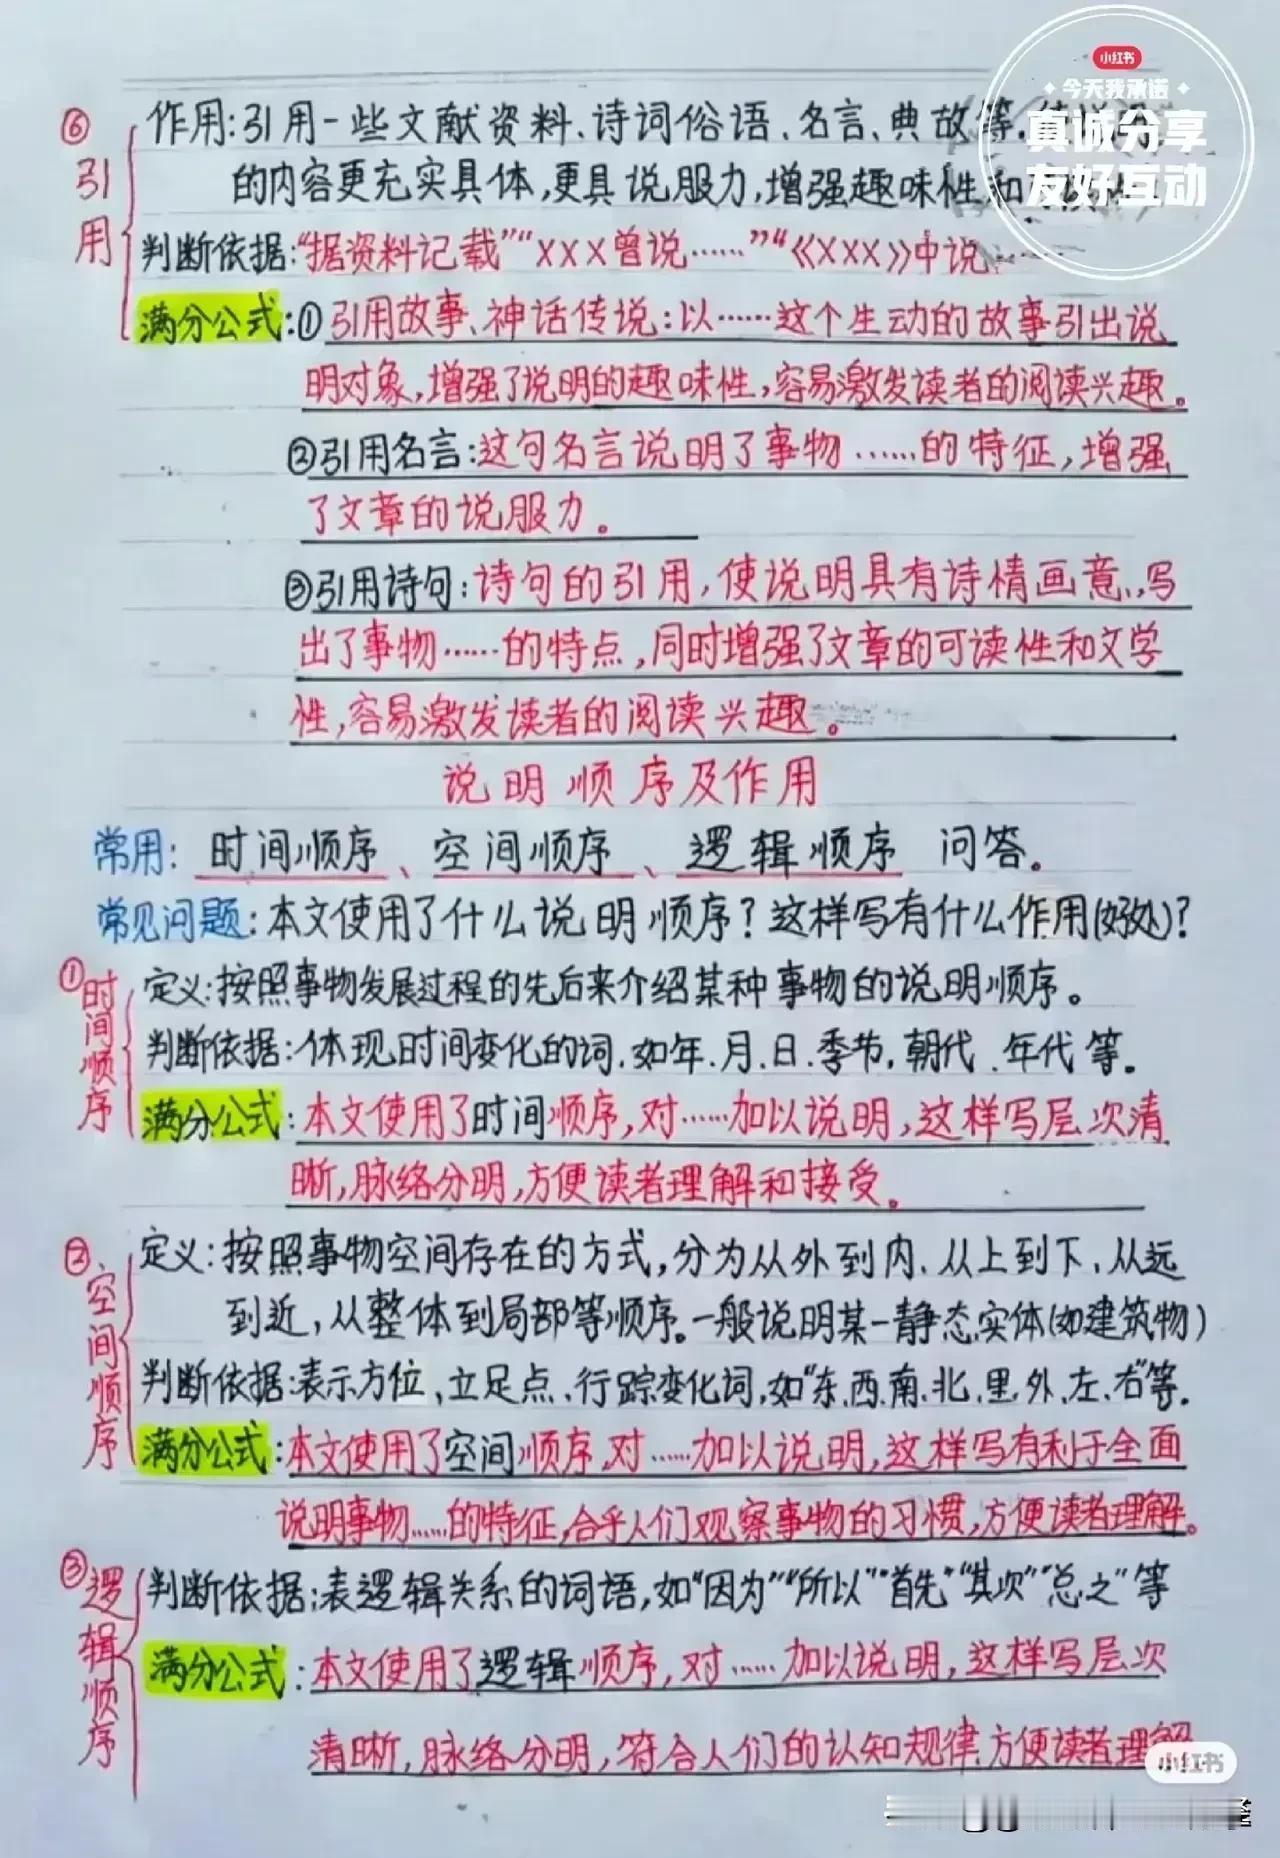 小红书
今天我承诺
真诚分享
友好互动
⑥引用
作用:引用一些文献资料、诗词俗语、名言、典故等,
的内容更充实具体,更具说服力,增强趣味性和
判断依据:“据资料记载”“XXX曾说……”“《XXX》中说
满分公式:①引用故事、神话传说:以……这个生动的故事引出说
明对象,增强了说明的趣味性,容易激发读者的阅读兴趣。
②引用名言:这句名言说明了事物……的特征,增强
了文章的说服力。
③引用诗句:诗句的引用,使说明具有诗情画意,写
出了事物……的特点,同时增强了文章的可读性和文学
性,容易激发读者的阅读兴趣。
说明顺序及作用
常用:时间顺序、空间顺序、逻辑顺序 问答。
常见问题:本文使用了什么说明顺序?这样写有什么作用(好处)?
①时间顺序
定义:按照事物发展过程的先后来介绍某种事物的说明顺序。
判断依据:体现时间变化的词,如年、月、日、季节,朝代、年代等。
满分公式:本文使用了时间顺序,对……加以说明,这样写层次清
晰,脉络分明,方便读者理解和接受。
②、空间顺序
定义:按照事物空间存在的方式,分为从外到内、从上到下、从远
到近,从整体到局部等顺序。一般说明某一静态实体(如建筑物)
判断依据:表示方位、立足点、行踪变化词,如“东、西、南、北、里、外、左、右”等。
满分公式:本文使用了空间顺序,对……加以说明,这样写有利于全面
说明事物……的特征,合乎人们观察事物的习惯,方便读者理解。
③逻辑顺序
判断依据:表逻辑关系的词语,如“因为”“所以”“首先”“其次”“总之”等
满分公式:本文使用了逻辑顺序,对……加以说明,这样写层次
清晰,脉络分明,符合人们的认知规律,方便读者理解
小红书